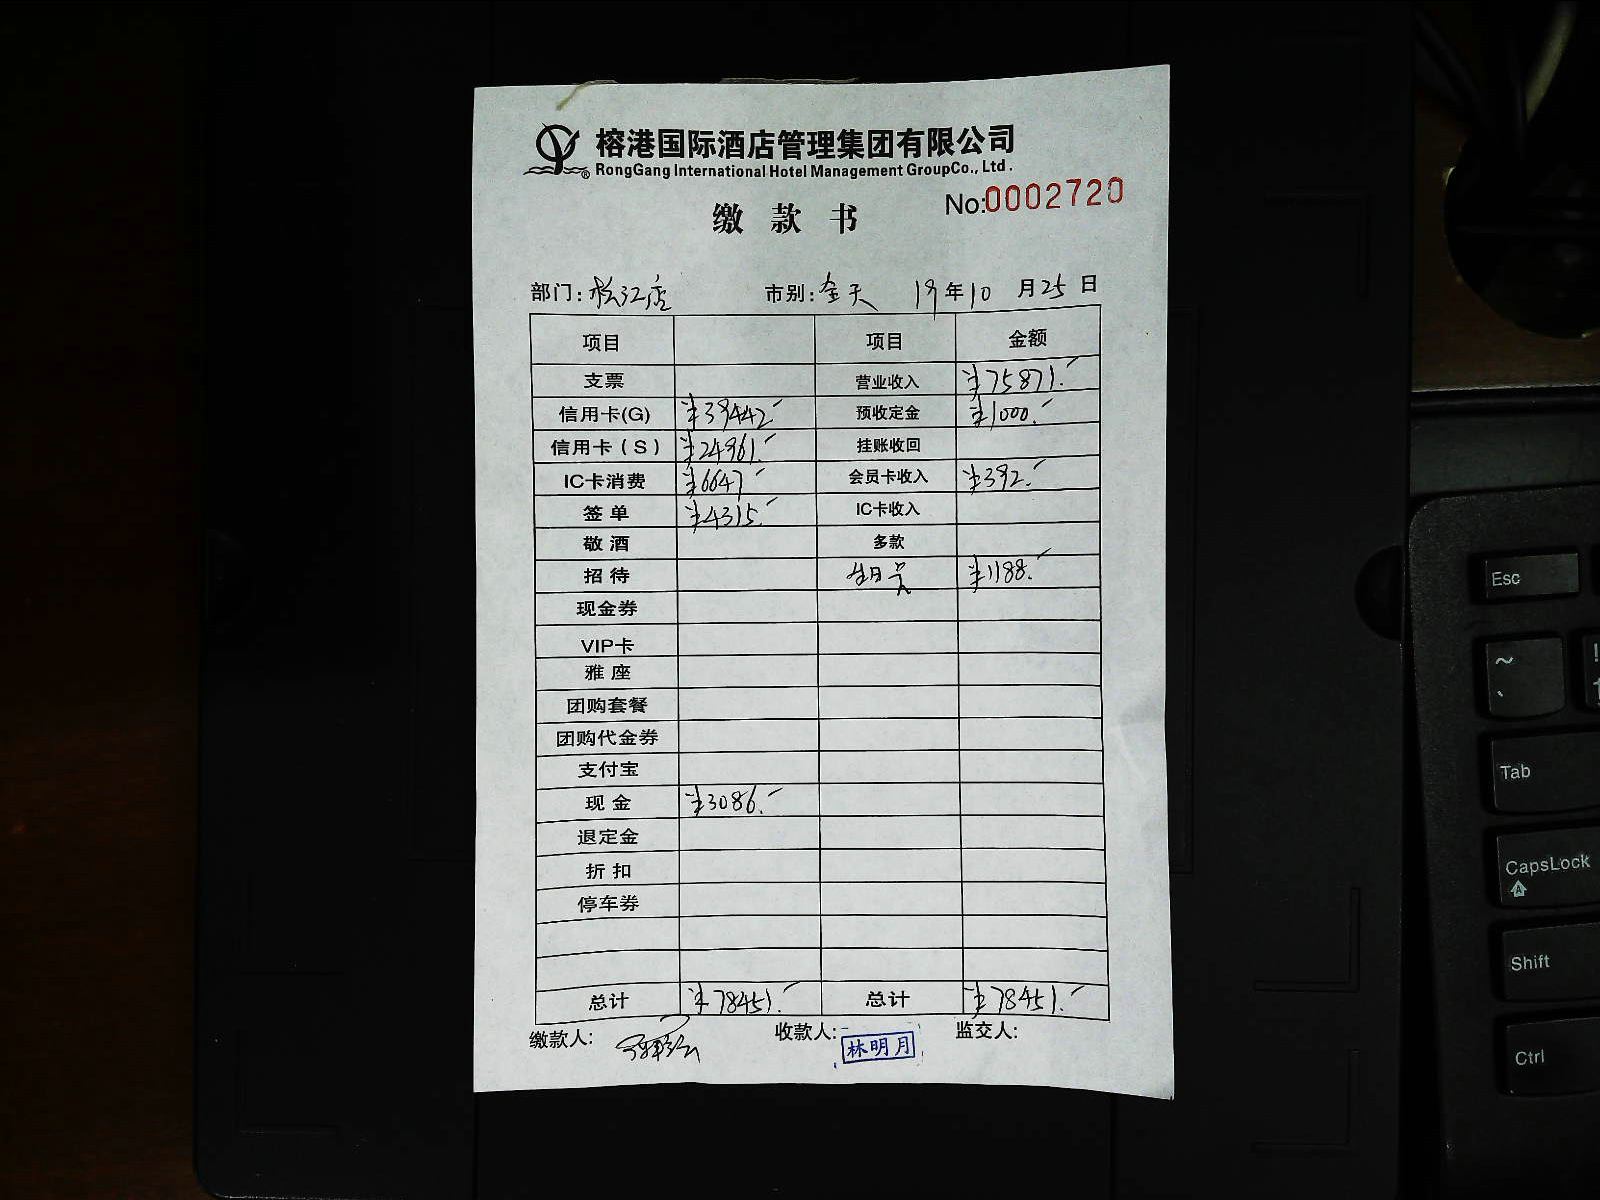 榕港国际酒店管理集团有限公司
®RongGang International Hotel Management GroupCo., Ltd.
No:0002720
缴款书
部门:松江店 市别:全天 19年10月25日
项目 项目 金额
支票 营业收入 ¥75871.-
信用卡(G) ¥39442.- 预收定金 ¥1000.-
信用卡(S) ¥24961.- 挂账收回
IC卡消费 ¥6647.- 会员卡收入 ¥392.-
签单 ¥4315.- IC卡收入
敬酒 多款
招待 生日 ¥1188.-
现金券
VIP卡
雅座
团购套餐
团购代金券
支付宝
现金 ¥3086.-
退定金
折扣
停车券
总计 ¥78451.- 总计 ¥78451.-
缴款人: 收款人: 林明月 监交人:
Esc
~
!
Tab
CapsLock
A
Shift
Ctrl